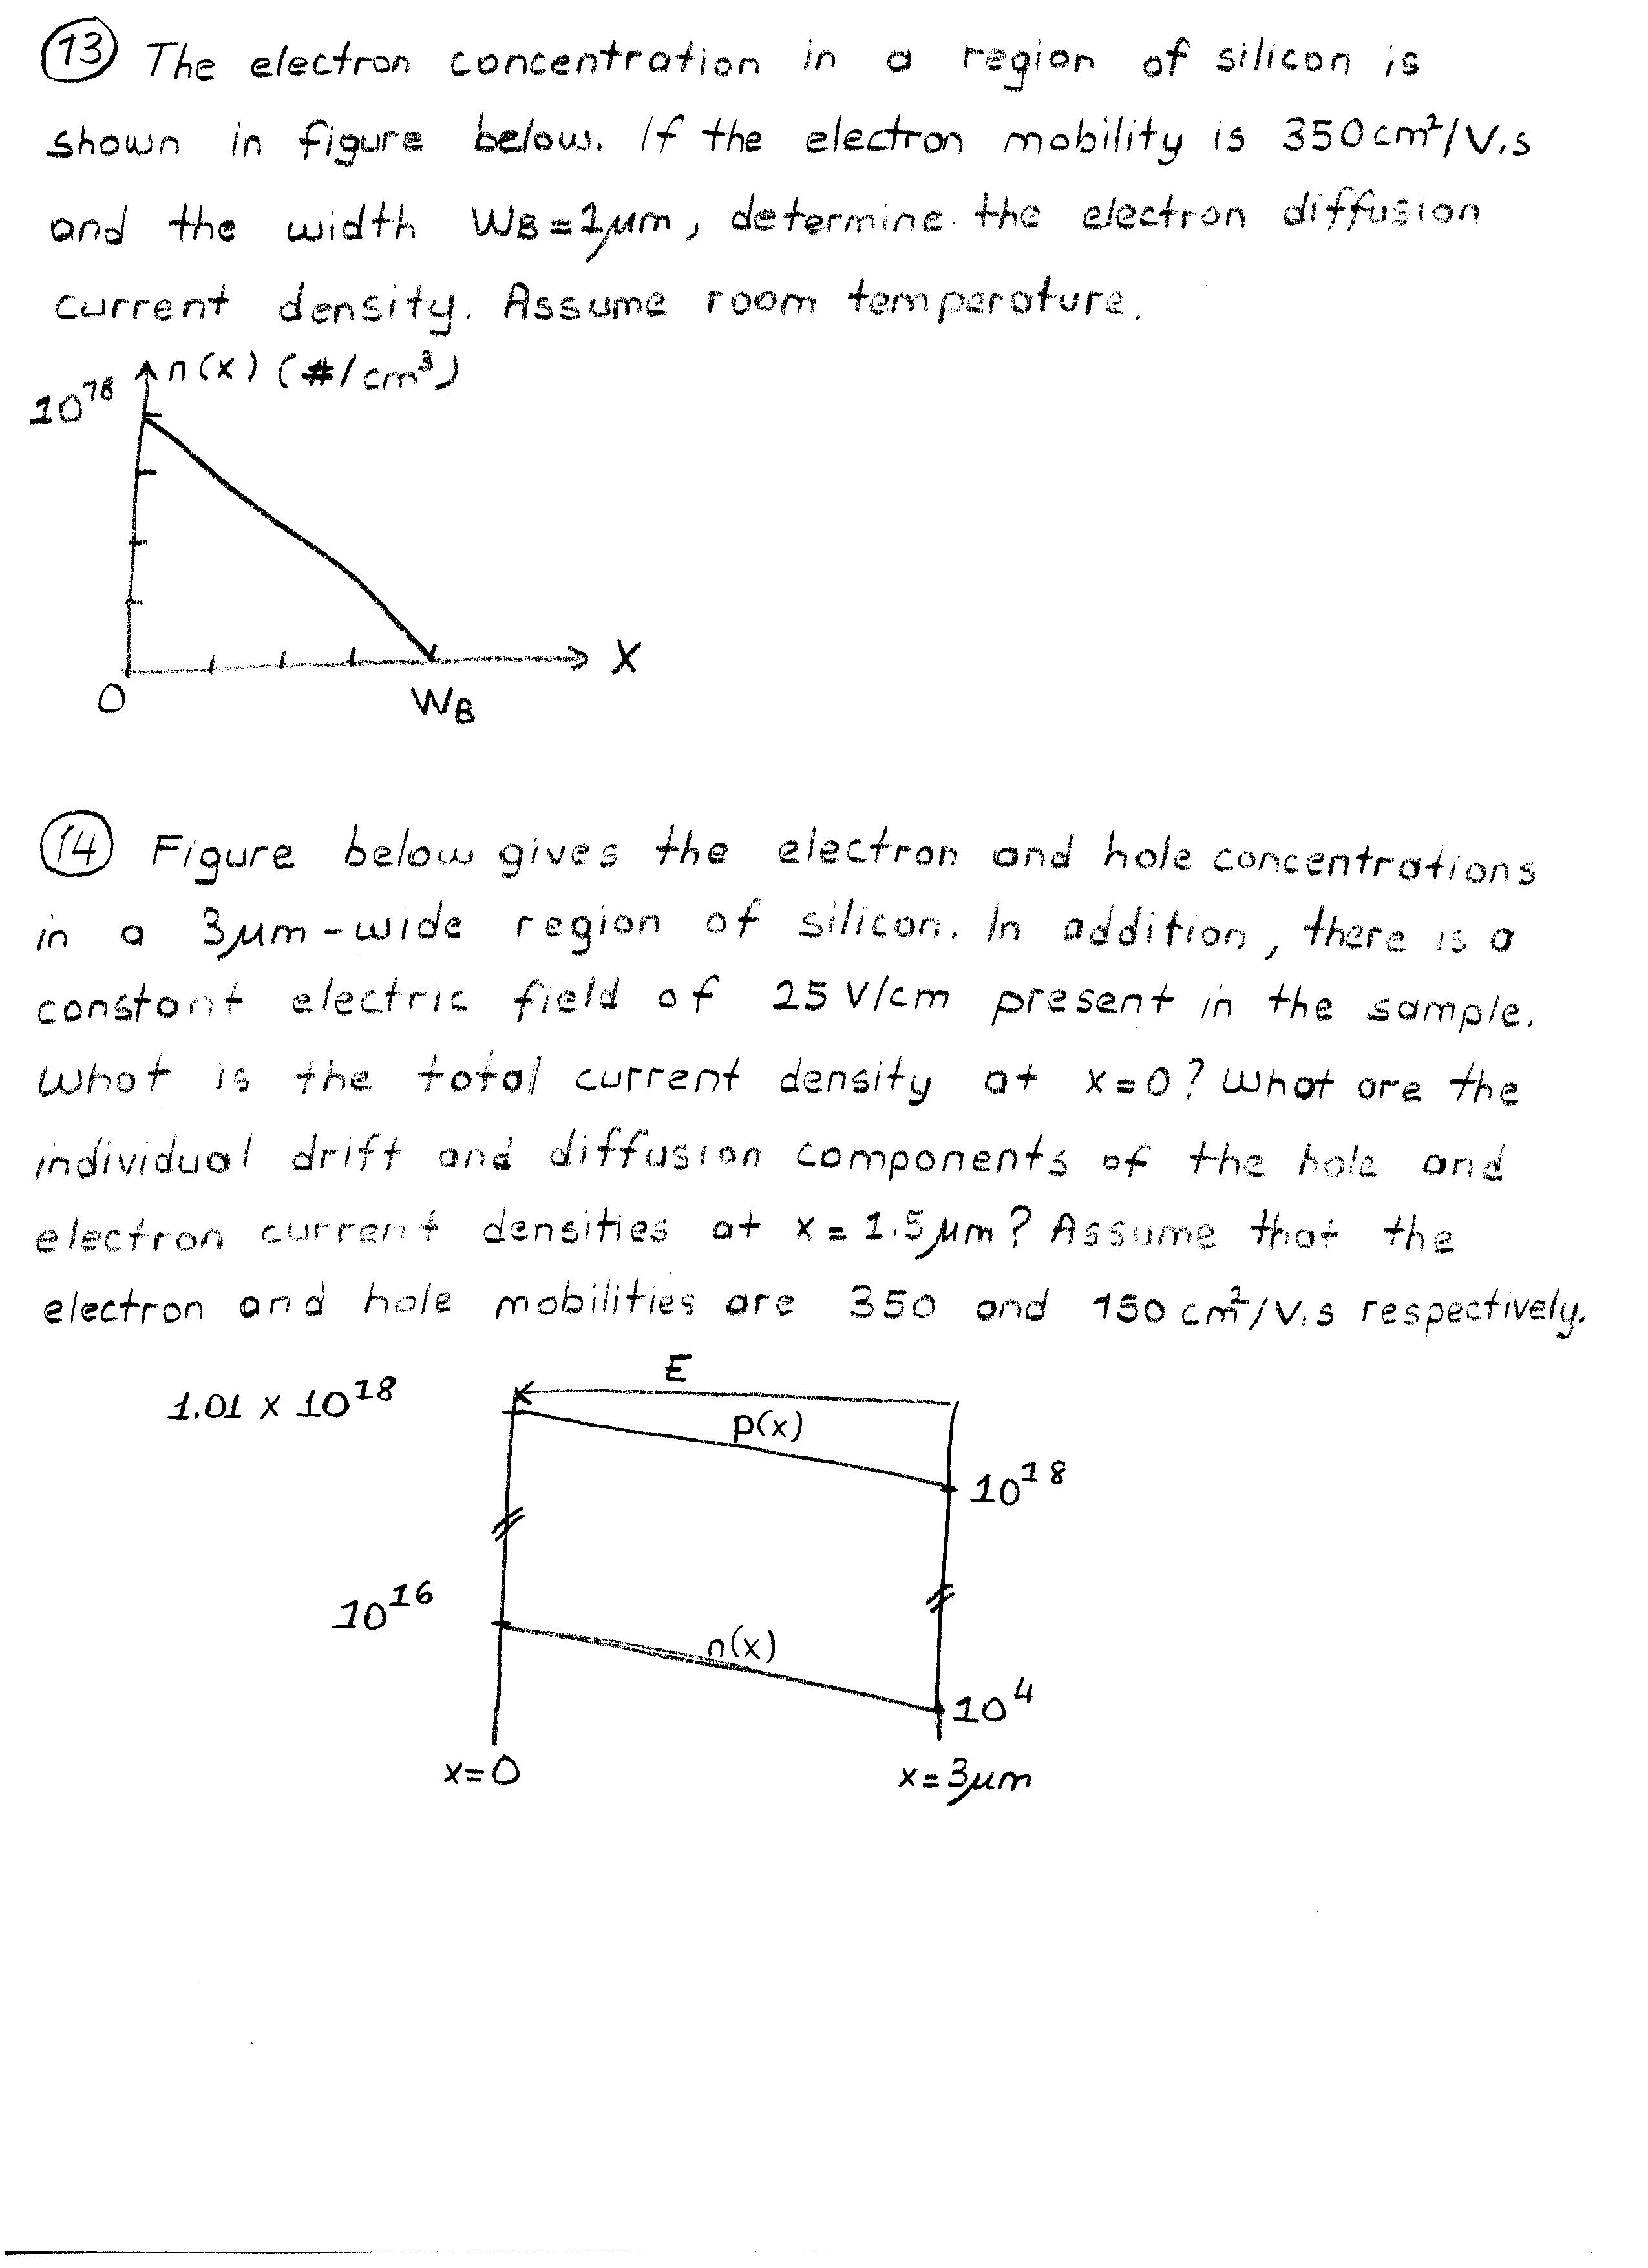 13 The electron concentration in a region of silicon is
shown in figure below. If the electron mobility is 350 cm²/V.s
and the width WB = 1μm, determine the electron diffusion
current density. Assume room temperature.
n(x) (#/cm³)
10¹⁸
X
O
WB
14 Figure below gives the electron and hole concentrations
in a 3μm-wide region of silicon. In addition, there is a
constant electric field of 25 V/cm present in the sample.
What is the total current density at x=0? What are the
individual drift and diffusion components of the hole and
electron current densities at x = 1.5μm? Assume that the
electron and hole mobilities are 350 and 150 cm²/V.s respectively.
E
1.01 x 10¹⁸
p(x)
10¹⁸
10¹⁶
n(x)
10⁴
x=0
x=3μm